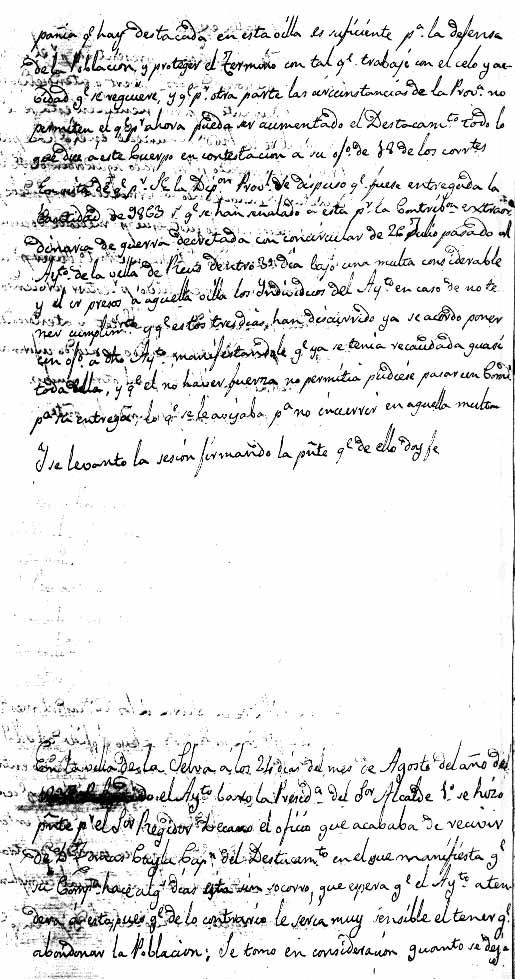 pañia qe hay destacada en esta villa es suficiente pa. la defensa
de la Poblacion, y proteger el Termino con tal qe. trabaje con el celo y ac-
tividad qe. se requiere, y qe. pr. otra parte las circunstancias de la Prova. no
permiten el qe. pr. ahora pueda ser aumentado el Destacamto. todo lo
que dice a este Cuerpo en contestacion á su ofo. de 18 de los corrtes
Con vista de qe. pr. la Dipon. Provl. se dispuso qe. fuese entregada la
Cantidad de 9863 rs. qe. se han señalado á esta pr. la Contribon. extraor-
dinaria de guerra decretada con circular de 26 Julio pasado al
Ayto. de la villa de Reus dentro 3o. dia bajo una multa considerable
y el ir presos á aquella villa los Individuos del Ayto. en caso de no te-
ner cumplimto. y qe. estos tres dias, han discurrido ya se acordo poner
un ofo. á dho Ayto. manifestandole qe. ya se tenia recaudada quasi
toda ella, y qe. el no haver fuerza no permitia pudiese pasar un Comi
pa. su entrega; lo qe. se le avisaba pa. no incurrir en aquella multa
Y se levanto la sesion firmando la pnte qe. de ello doy fe
En la villa de la Selva a los 24 dias del mes de Agosto del año de
el Ayto. baxo la Presida. del Sor. Alcalde 1o. se hizo
pnte pr. el Sor. Regidor Decano el oficio que acababa de recivir
de Dn. Capn. del Destacamto. en el que manifiesta qe.
su Compa. hace algs. dias esta sin socorro, que espera qe. el Ayto. aten-
dera a esta, pues qe. de lo contrario le seria muy sensible el tener qe.
abandonar la Poblacion; Se tomo en consideracion quanto se deja